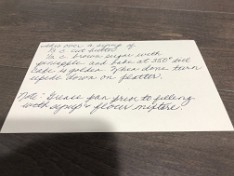 over a syrup of
½ c. brown sugar with
pineapple and bake at 350° until
cake is golden. When done turn
upside down on platter.
Note: Grease pan prior to filling
with syrup + flour mixture.